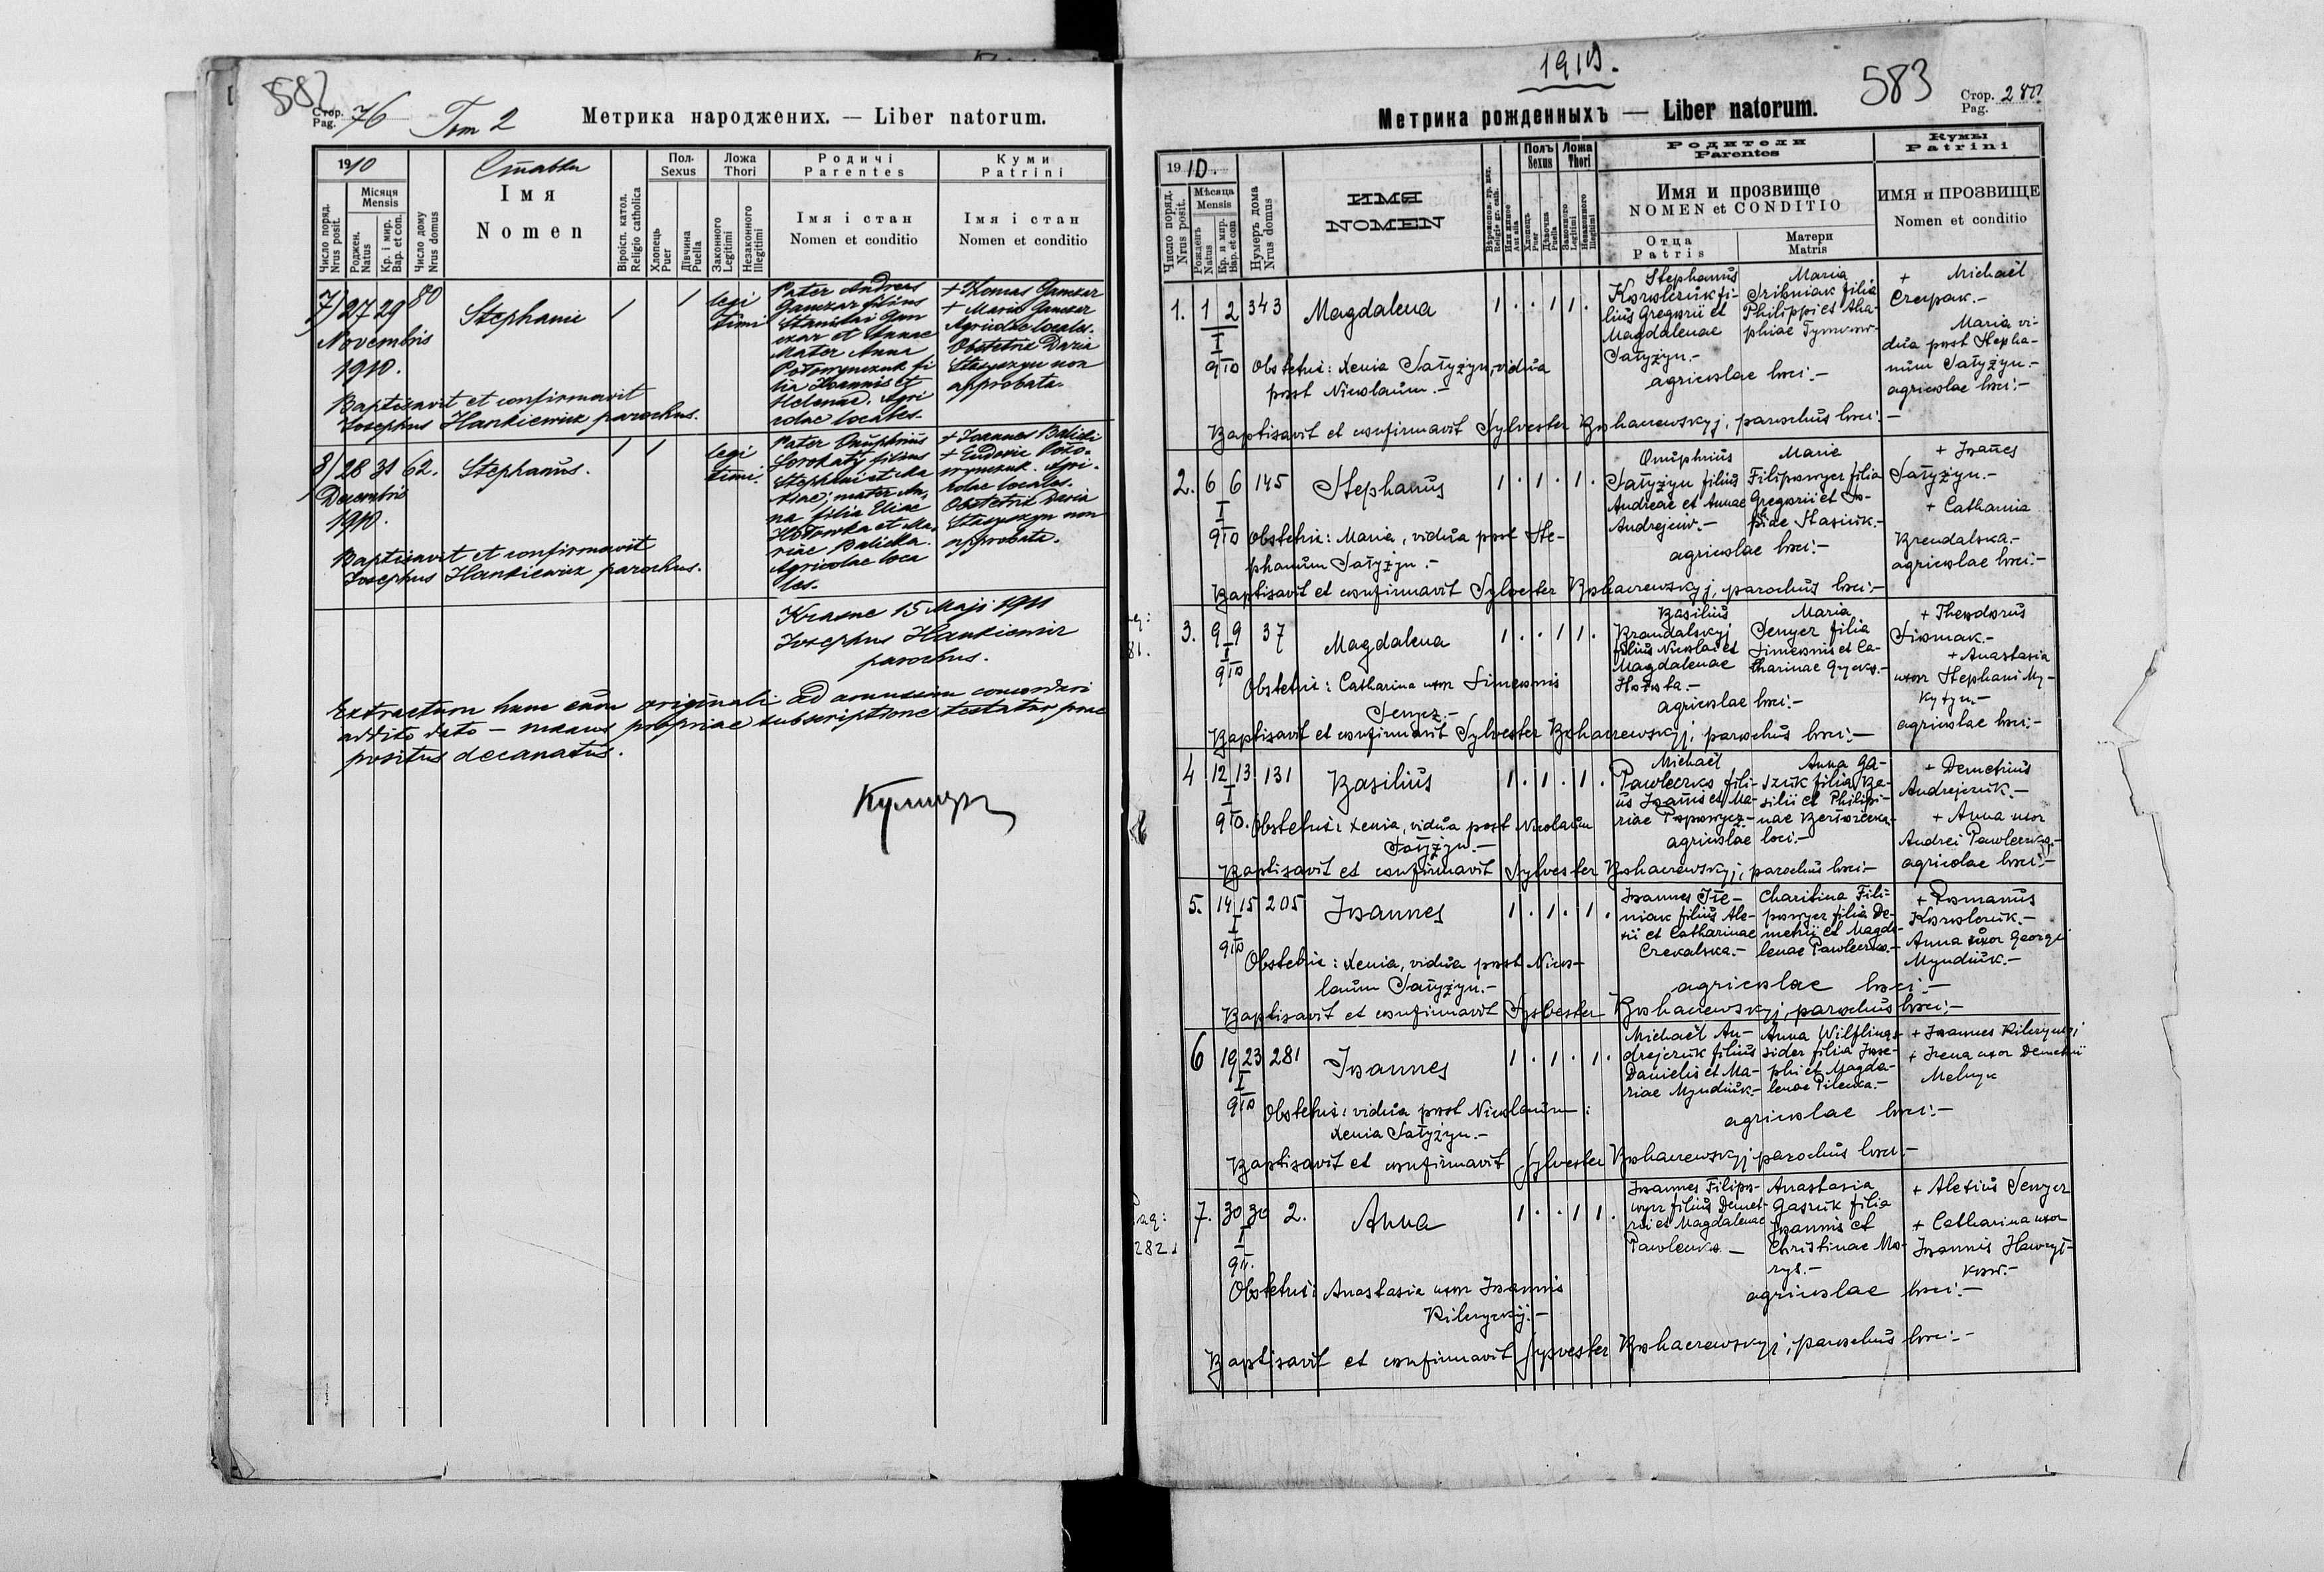 582
Стор. Pag. 76 Том 2 Метрика народжених. — Liber natorum.
1910
Число поряд. Nrus posit.
Місяця Mensis
Роджен. Natus
Кр. і мир. Bap. et con.
Число дому Nrus domus
Ставки
Імя
Nomen
Віроісп. катол. Religio catholica
Пол. Sexus
Хлопець Puer
Дівчина Puella
Ложа Thori
Законного Legitimi
Незаконного Illegitimi
Родичі
Parentes
Імя і стан
Nomen et conditio
Куми
Patrini
Імя і стан
Nomen et conditio
7) 27 29 80 Stephania 1 1 legi
timi
Novembris
1910.
Pater Andreas
Ganczar filius
Stanislai Gan
czar et Annae
Mater Anna
fi
lia Ioannis et
Helenae. Agri
colae locales.
+ Thomas Ganczar
+ Maria Ganczar
Agricolae locales.
Obstetrix Daria
non
approbata.
Baptisavit et confirmavit
Iosephus Hankiewicz parochus.
8) 28 31 62. Stephanus. 1 1 legi
timi.
Decembris
1910.
Pater Onuphrius
Sorokatý filius
Stephani et Ma
riae; mater An
na filia Eliae
et Ma
riae Balicka.
Agricolae loca
les.
+ Ioannes Balicki
+ Eudoxia
Agri-
colae locales.
Obstetrix Daria
non
approbata.
Baptisavit et confirmavit
Iosephus Hankiewicz parochus.
Krasne 15 Maji 1911
Iosephus Hankiewicz
parochus.
Extractum hunc cum originali ad amussim concordari
addito dato — manus propriae subscriptione testatur prae
positus decanatus.
1910.
583
Метрика рожденныхъ — Liber natorum. Стор. Pag. 280
1910.
Число поряд. Nrus posit.
Мѣсяца Mensis
Рожденъ Natus
Кр. и мир. Bap. et con.
Нумеръ дома Nrus domus
ИМЯ
NOMEN
Вѣроиспов. гр. кат. Religio gr. cath.
Или инное Aut alia
Полъ Sexus
Хлопець Puer
Дѣвочка Puella
Ложа Thori
Законного Legitimi
Незаконного Illegitimi
Родители
Parentes
Имя и прозвище
NOMEN et CONDITIO
Отца
Patris
Матери
Matris
Кумы
Patrini
ИМЯ и ПРОЗВИЩЕ
Nomen et conditio
1. 1 2 343 Magdalena 1 . . 1 1 .
I
910
Stephanus
Korolczuk fi-
lius Gregorii et
Magdalenae
Satyzyn.-
Maria
Sribniak filia
Philippi et Aha-
phiae
+ Michaël
Czerpak.-
Maria vi-
dua post Stepha-
num Satyżyn.-
agricolae loci:-
Obstetrix: Xenia Satyżyn, vidua
post Nicolaum.-
agricolae loci:-
Baptisavit et confirmavit Sylvester Bohaczewskyj, parochus loci:-
2. 6 6 145 Stephanus 1 . 1 . 1 .
I
910
Onuphrius
Satyżyn filius
Andreae et Annae
Andrejciw.-
Maria
Filipowycz filia
Gregorii et So-
phiae Stasiuk.-
+ Ioannes
Satyżyn.-
+ Catharina
Brendalska.-
agricolae loci:-
Obstetrix: Maria, vidua post Ste-
phanum Satyżyn.-
agricolae loci:-
Baptisavit et confirmavit Sylvester Bohaczewskyj, parochus loci:-
3. 9 9 37 Magdalena 1 . . 1 1 .
I
910
Basilius
Brandalskyj
filius Nicolai et
Magdalenae
Maria
Senycz filia
Simeonis et Ca-
tharinae
+ Theodorus
+ Anastasia
uxor Stephani My-
kytyn.-
agricolae loci:-
Obstetrix: Catharina uxor Simeonis
Senycz.-
agricolae loci:-
Baptisavit et confirmavit Sylvester Bohaczewskyj, parochus loci:-
4 12 13 131 Basilius 1 . 1 . 1 .
I
910.
Michaël
Pawleczko fili-
us Ioannis et Ma-
riae Popowycz-
Anna Ga-
szuk filia Ba-
silii et Philipi-
nae
+ Demetrius
Andrejczuk.-
+ Anna uxor
Andrei Pawleczko.-
agricolae loci:-
Obstetrix: Xenia, vidua post Nicolaum
Satyżyn.-
agricolae loci.-
Baptisavit et confirmavit Sylvester Bohaczewskyj, parochus loci:-
5. 14 15 205 Ioannes 1 . 1 . 1 .
I
910
Ioannes
filius Ale-
xii et Catharinae
Czekalska.-
Charitina Fili-
powycz filia De-
metrii et Magda-
lenae Pawleczko.-
+ Romanus
Korolczuk.-
Anna uxor Georgii
Myndiuk.-
Obstetrix: Xenia, vidua post Nico-
laum Satyżyn.-
agricolae loci:-
Baptisavit et confirmavit Sylvester Bohaczewskyj, parochus loci:-
6 19 23 281 Ioannes 1 . 1 . 1 .
I
910
Michaël An-
drejczuk filius
Danielis et Ma-
riae Myndiuk.-
Anna Wilflings-
sider filia Iose-
phi et Magda-
lenae Pilecka.-
+ Ioannes
+ Irena uxor Demetrii
Melnyk
Obstetrix: vidua post Nicolaum:
Xenia Satyżyn.-
agricolae loci:-
Baptisavit et confirmavit Sylvester Bohaczewskyj parochus loci.-
7. 30 30 2. Anna 1 . . 1 1 .
I
910.
Ioannes Filipo-
wycz filius Demet-
rii et Magdalenae
Pawleczko -
Anastasia
Gaszuk filia
Ioannis et
Christinae Mo-
rys.-
+ Alexius Senycz
+ Catharina uxor
Ioannis Hawryl-
kow.-
Obstetrix: Anastasia uxor Ioannis
agricolae loci:-
Baptisavit et confirmavit Sylvester Bohaczewskyj, parochus loci:-
Pag:
282.